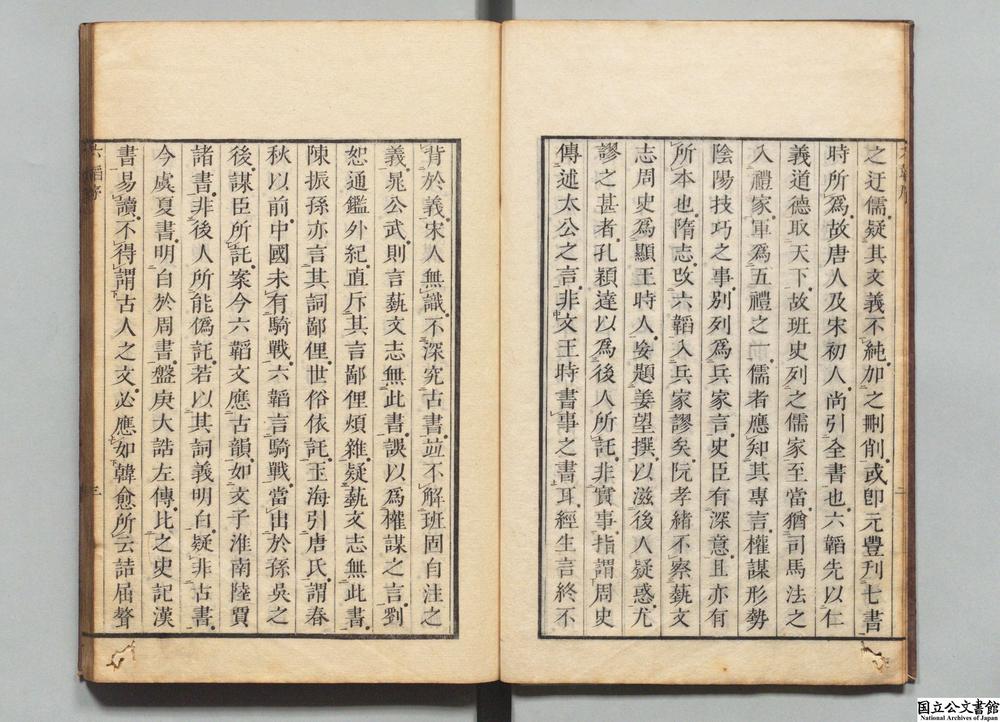 之迂儒疑其文義不純加之刪削或卽元豐刊七書
時所爲故唐人及宋初人尚引全書也六韜先以仁
義道德取天下故班史列之儒家至當猶司馬法之
入禮家軍爲五禮之一儒者應知其專言權謀形勢
陰陽技巧之事別列爲兵家言史臣有深意且亦有
所本也隋志改六韜入兵家謬矣阮孝緒不察藝文
志周史爲顯王時人妄題姜望撰以滋後人疑惑尤
謬之甚者孔穎達以爲後人所託非實事指謂周史
傳述太公之言非文王時書事之書耳經生言終不
背於義宋人無識不深究古書竝不解班固自注之
義晁公武則言藝文志無此書誤以爲權謀之言劉
恕通鑑外紀直斥其言鄙俚煩雜疑藝文志無此書
陳振孫亦言其詞鄙俚世俗依託王海引唐氏謂春
秋以前中國未有騎戰六韜言騎戰當出於孫吳之
後謀臣所託案今六韜文應古韻如文子淮南陸賈
諸書非後人所能僞託若以其詞義明白疑非古書
今虞夏書明白於周書盤庚大誥左傳比之史記漢
書易讀不得謂古人之文必應如韓愈所云詰屈聱
二
三
国立公文書館
National Archives of Japan